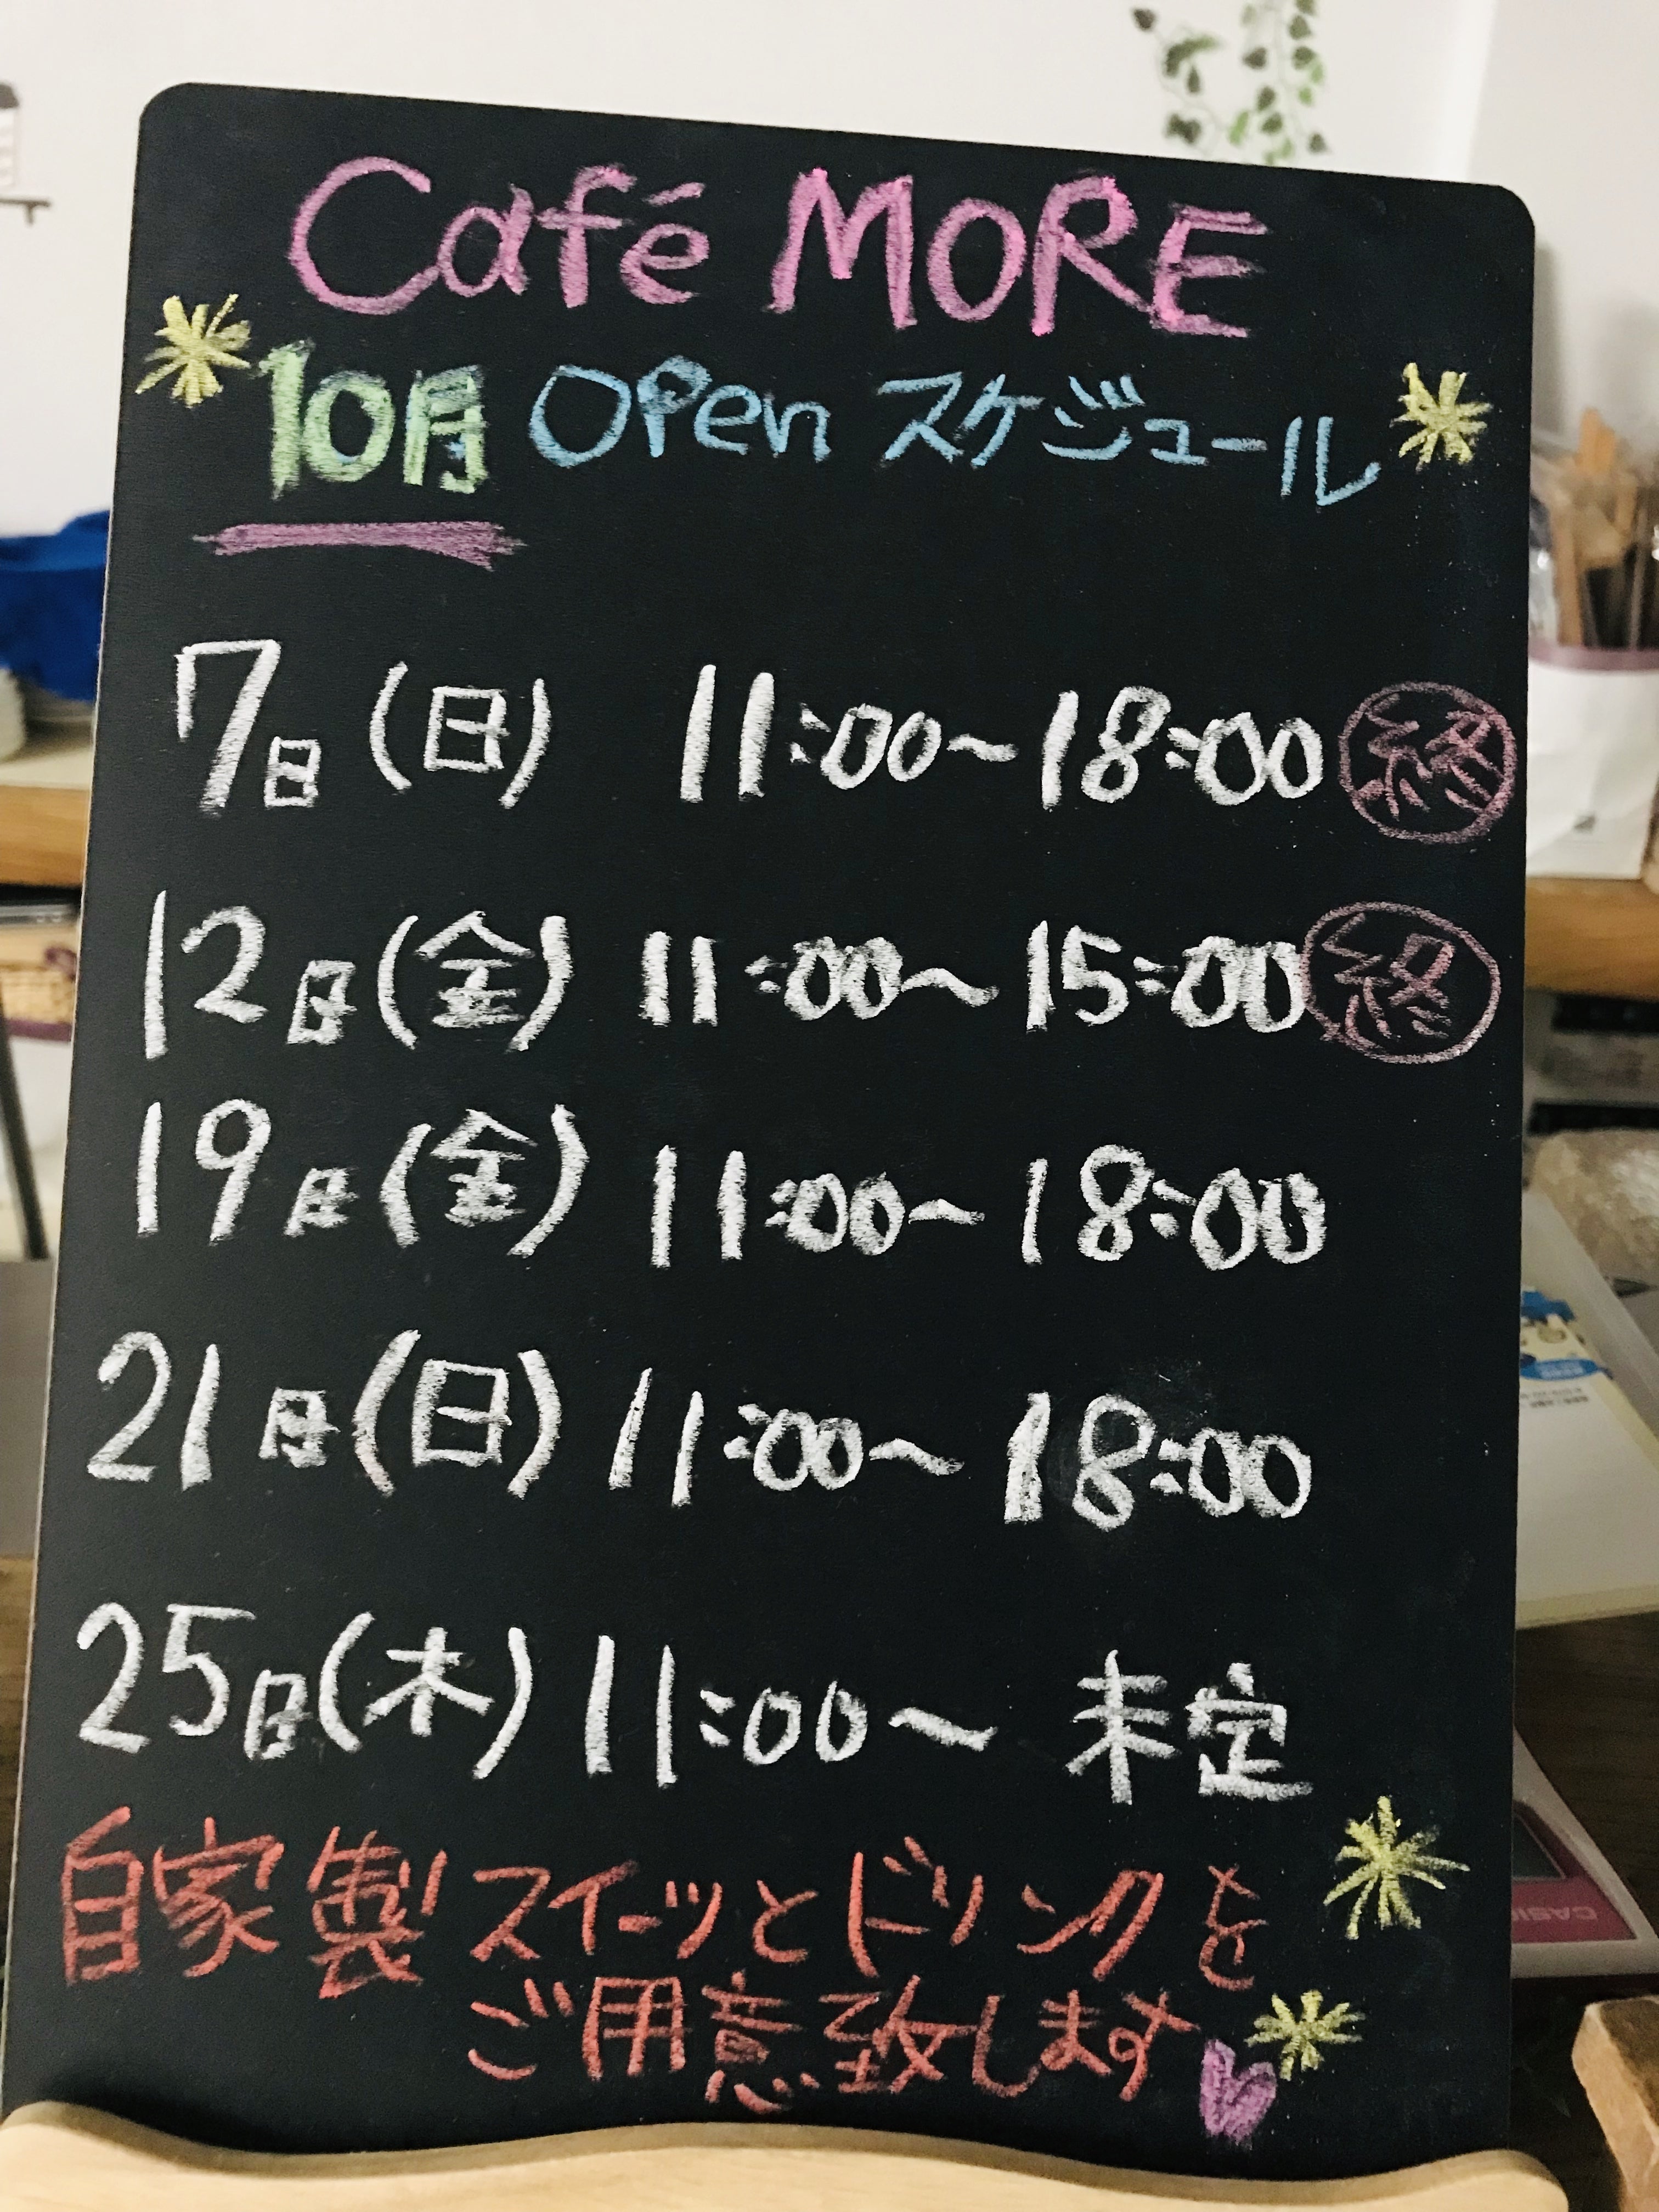 Café MORE
10月 Open スケジュール
7日(日) 11:00~18:00 終
12日(金) 11:00~15:00 終
19日(金) 11:00~18:00
21日(日) 11:00~18:00
25日(木) 11:00~ 未定
自家製スイーツとドリンクを
ご用意致します
CASIO